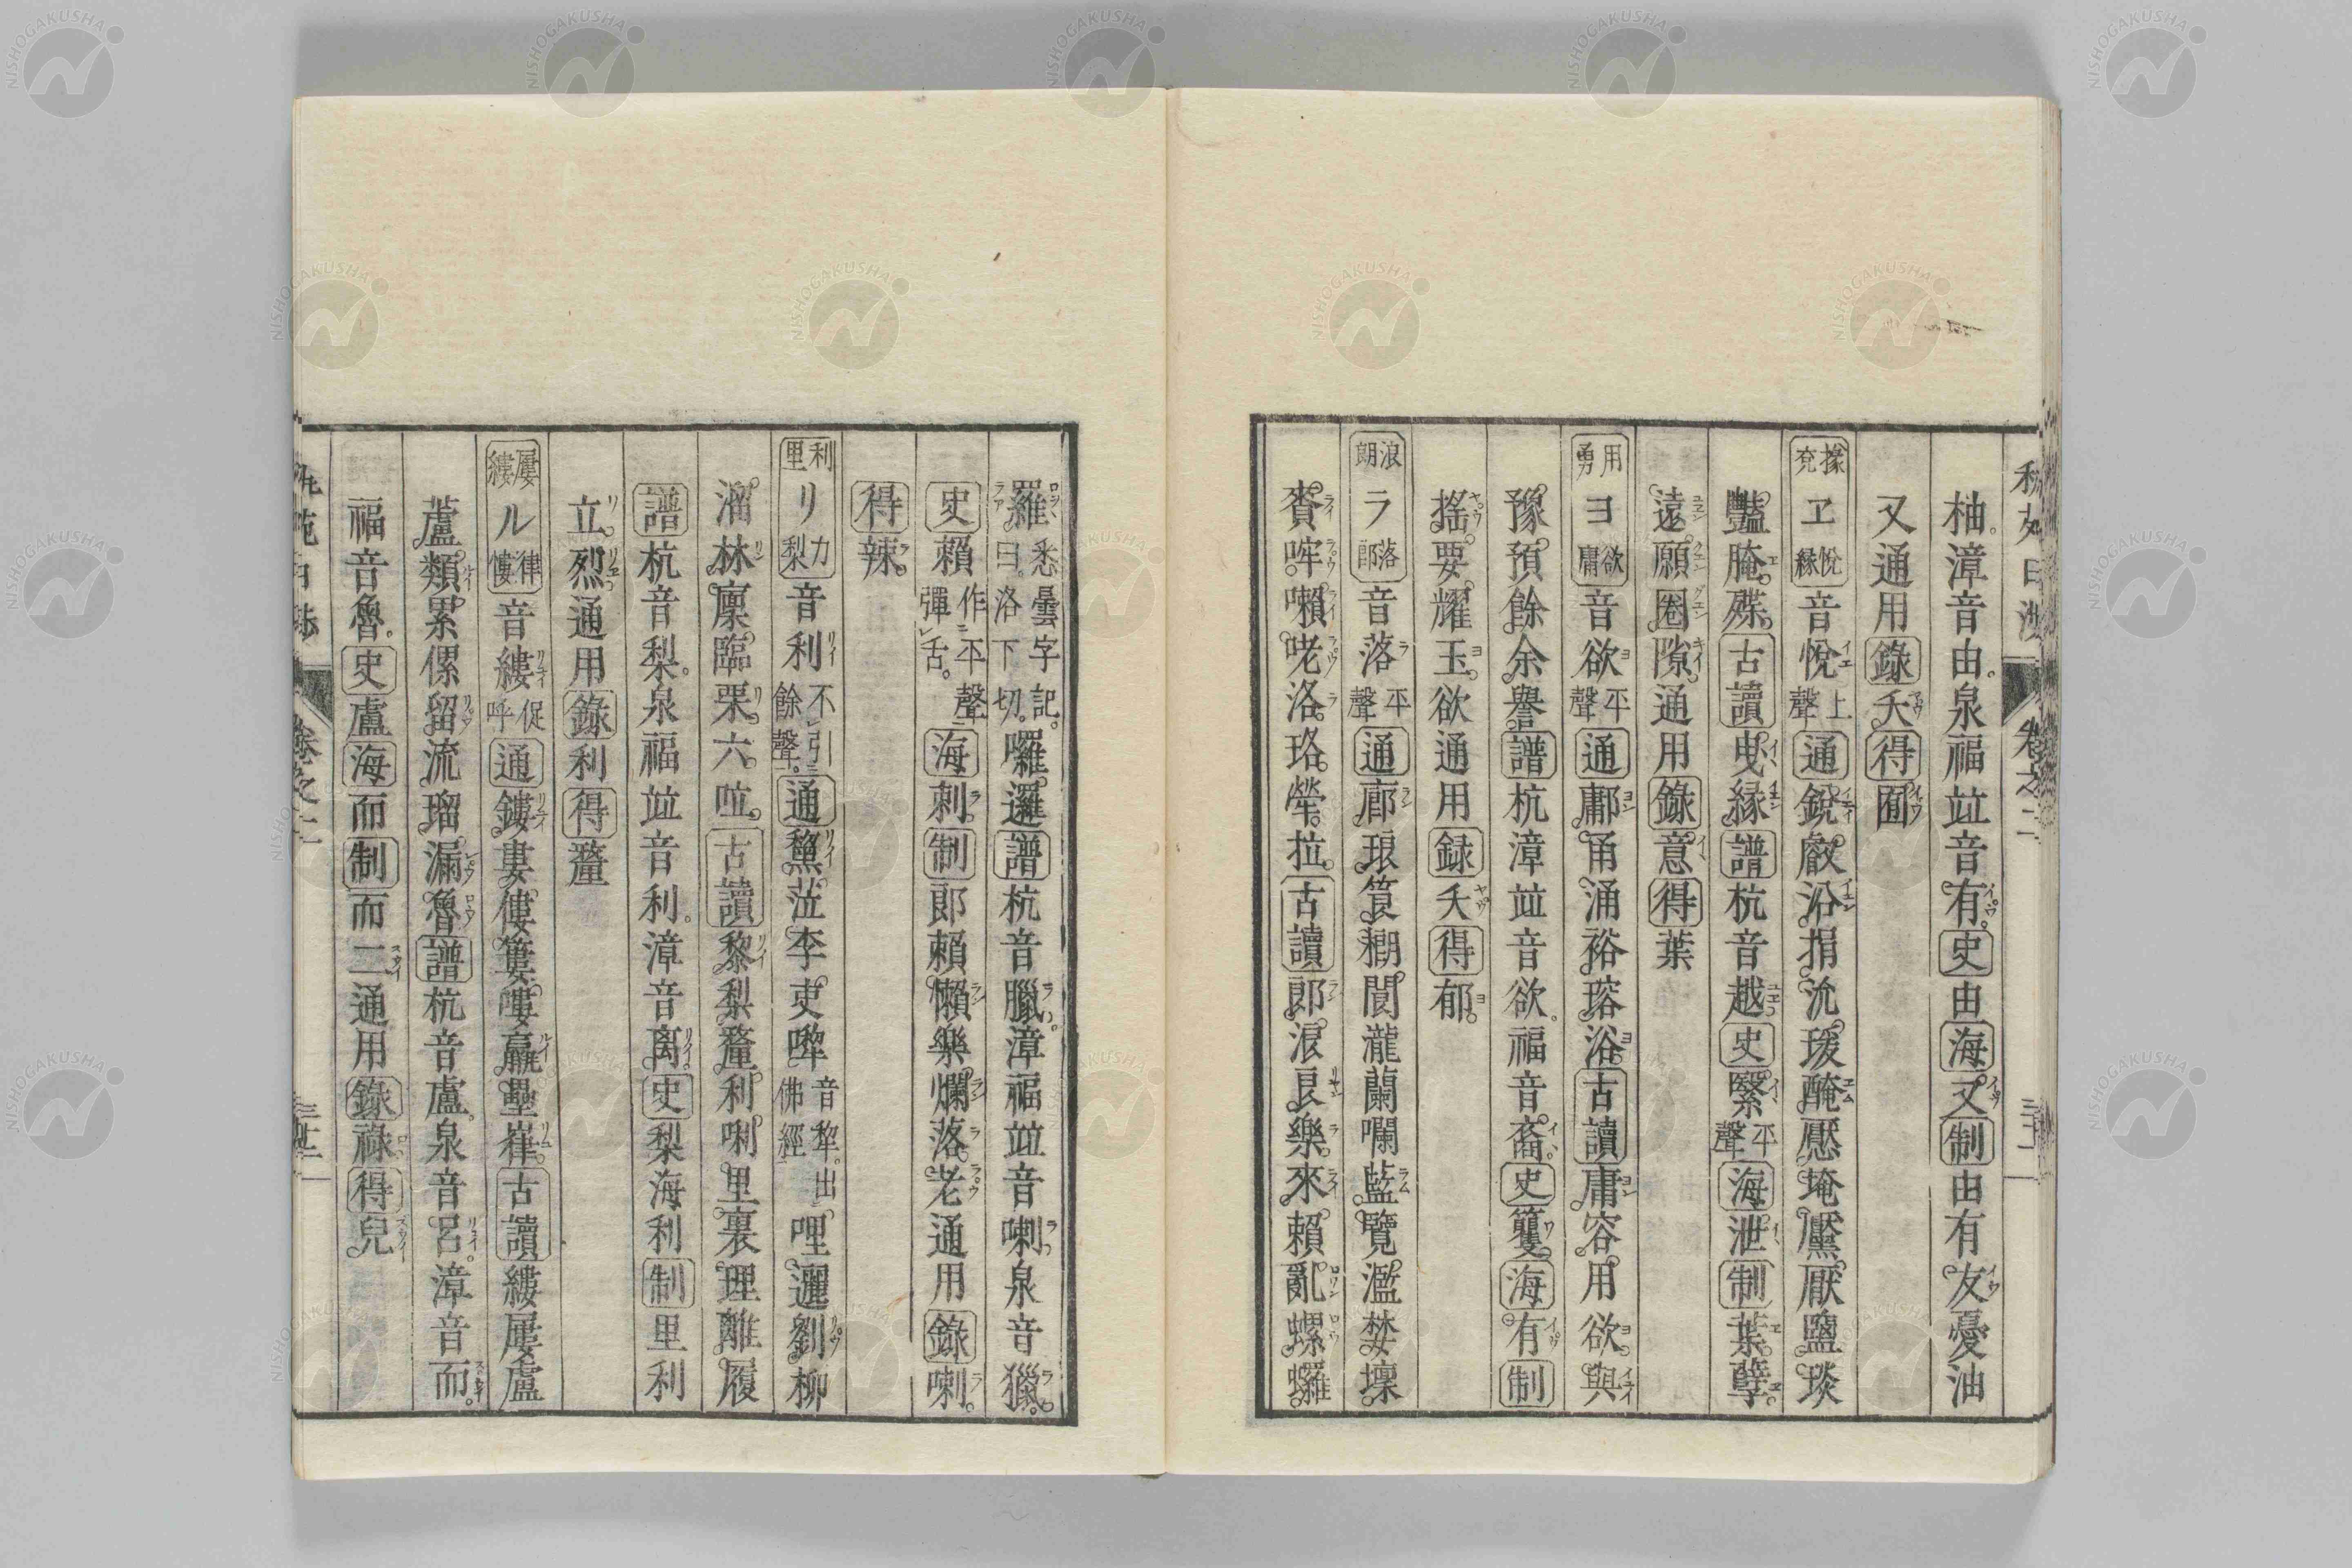 柚漳音由泉福竝音有史由海又制由有友憂油
又通用錄夭得囿
掾兗ヱ悅緣音悅上聲通銳叡沿捐沇瑗醃懕埯黶厭鹽琰
豔腌殜古讀曳緣譜杭音越史緊平聲海泄制葉孽
遠願圈隙通用錄意得葉
用勇ヨ欲庸音欲平聲通鄘甬涌裕瑢浴古讀庸容用欲與
豫預餘余譽譜杭漳竝音欲福音裔史籰海有制
搖要耀玉欲通用録夭得郁
浪朗ラ落郎音落平聲通廊琅筤閬瀧蘭囒藍覽濫婪壈
賚哰嚹咾洛珞犖拉古讀郎浪良樂來賴亂螺
羅悉曇字記曰洛下切囉邏譜杭音臘漳福竝音喇泉音獵
史賴作平聲彈舌海刺制郎賴懶樂爛落老通用錄喇
得辣
利里リ力梨音利不引餘聲通黧莅李吏嚟音犂出佛經哩邐劉柳
溜林廩臨栗六㕸古讀黎梨釐利唎里裏理離履
譜杭音梨泉福竝音利漳音离史梨海利制里利
立烈通用錄利得釐
屢縷ル律慺音縷促呼通鏤婁僂簍嘍羸壘嵂古讀縷屢盧
蘆類累傫留流瑠漏魯譜杭音盧泉音呂漳音而
福音魯史盧海而制而二通用錄祿得兒